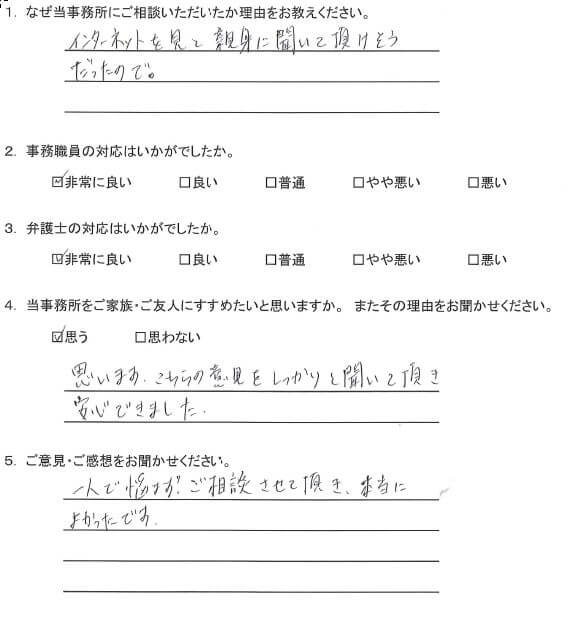 1. なぜ当事務所にご相談いただいたか理由をお教えください。
インターネットを見て親身に聞いて頂けそう
だったので。
2. 事務職員の対応はいかがでしたか。
☑非常に良い □良い □普通 □やや悪い □悪い
3. 弁護士の対応はいかがでしたか。
☑非常に良い □良い □普通 □やや悪い □悪い
4. 当事務所をご家族・ご友人にすすめたいと思いますか。 またその理由をお聞かせください。
☑思う □思わない
思います、こちらの意見をしっかりと聞いて頂き
安心できました.
5. ご意見・ご感想をお聞かせください。
一人で悩まず、ご相談させて頂き、本当に
よかったです.